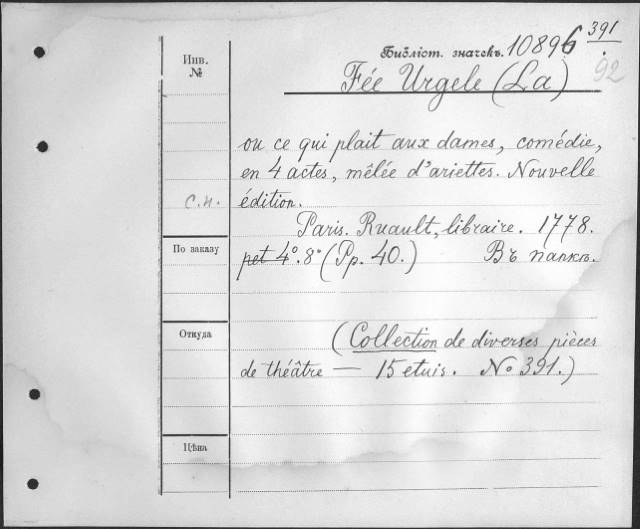 Библіот. значекъ. 10896 391
92
Инв.
№
Fée Urgele (La)
ou ce qui plait aux dames, comédie,
en 4 actes, mêlée d'ariettes. Nouvelle
с.н. édition.
Paris. Ruault, libraire. 1778.
По заказу
pet 4°. 8° (Pp. 40.) Въ папкѣ.
Откуда
(Collection de diverses pièces
de théâtre — 15 etuis. No 391.)
Цѣна